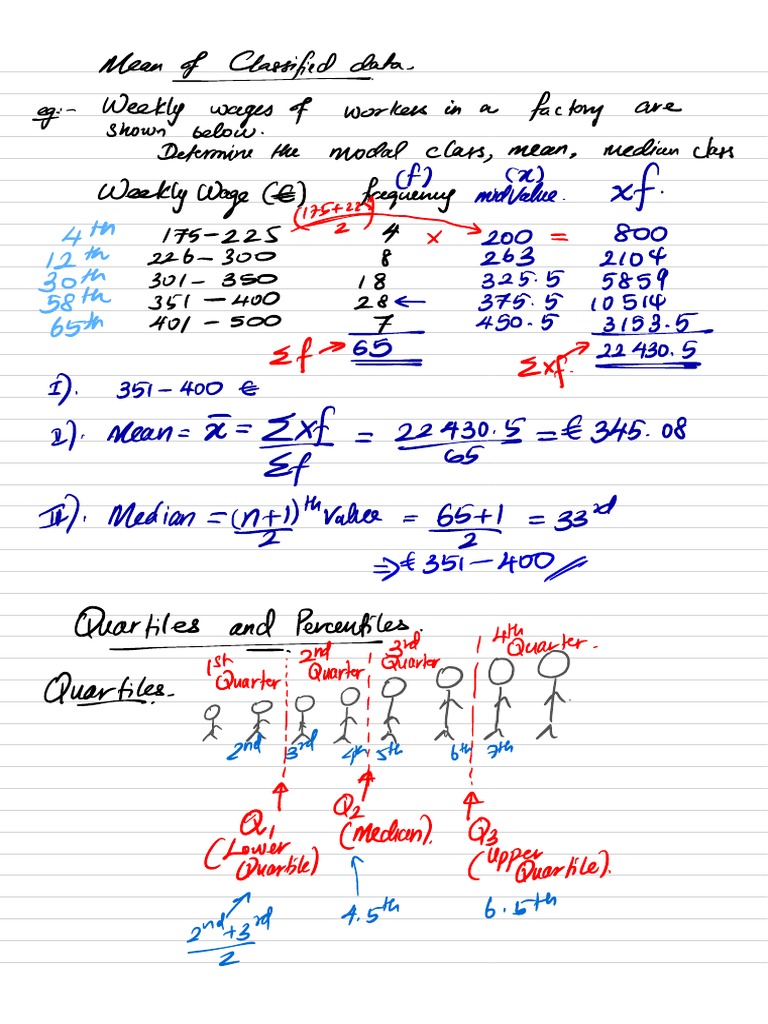 Mean of Classified data.
eg:- Weekly wages of workers in a factory are
shown below.
Determine the modal class, mean, median class
Weekly Wage (€) frequency (f) mid Value (x) xf.
(175+225)/2
4th 175-225 4 × 200 = 800
12th 226-300 8 263 2104
30th 301-350 18 325.5 5859
58th 351-400 28 ← 375.5 10514
65th 401-500 7 450.5 3153.5
Σf → 65 Σxf. 22 430.5
I). 351-400 €
II). Mean = x̄ = Σxf/Σf = 22 430.5/65 = € 345.08
III). Median = (n+1)/2 th Value = 65+1/2 = 33rd
⇒ € 351-400
Quartiles and Percentiles.
Quartiles.
1st Quarter 2nd Quarter 3rd Quarter 4th Quarter.
2nd 3rd 4th 5th 6th 7th
Q1 (Lower Quartile) Q2 (Median). Q3 (Upper Quartile).
2nd+3rd/2 4.5th 6.5th